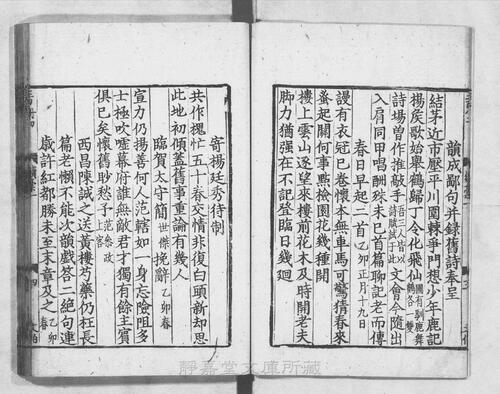 韻成鄙句并録舊詩奉呈
結茅近市壓平川圖棘爭門想少年鹿記
揚矦歌始舉鶴歸丁令化飛仙圖有馴鹿舞鶴各一雙
詩塲曽作推敲手吾二人皆以詩賦試于此文會今隨出
入肩同甲唱酬殊未已首篇聊記老而傳
春日早起二首乙卯正月十九日
謾有衣冠已卷懷本無車馬可驚猜春來
蚤起關何事㸃檢園花幾種開
樓上雲山逐望來樓前花木及時開老夫
脚力猶強在不記登臨日幾廻
寄揚廷秀待制
共作槐忙五十春交情非復白頭新却思
此地初傾蓋舊事重論有幾人
臨賀太守簡世傑挽辭乙卯春
宣力仍揚善何人范轄如一身忘險阻多
士極吹噓幕府誰無敵君才獨有餘主賓
俱已矣懷舊眇愁予范參政上官
西昌陳誠之送黃樓芍藥仍枉長
篇老嬾不能次韻戲荅二絶句連
歲許紅都勝未至末章及之乙卯
四
靜嘉堂文庫所蔵